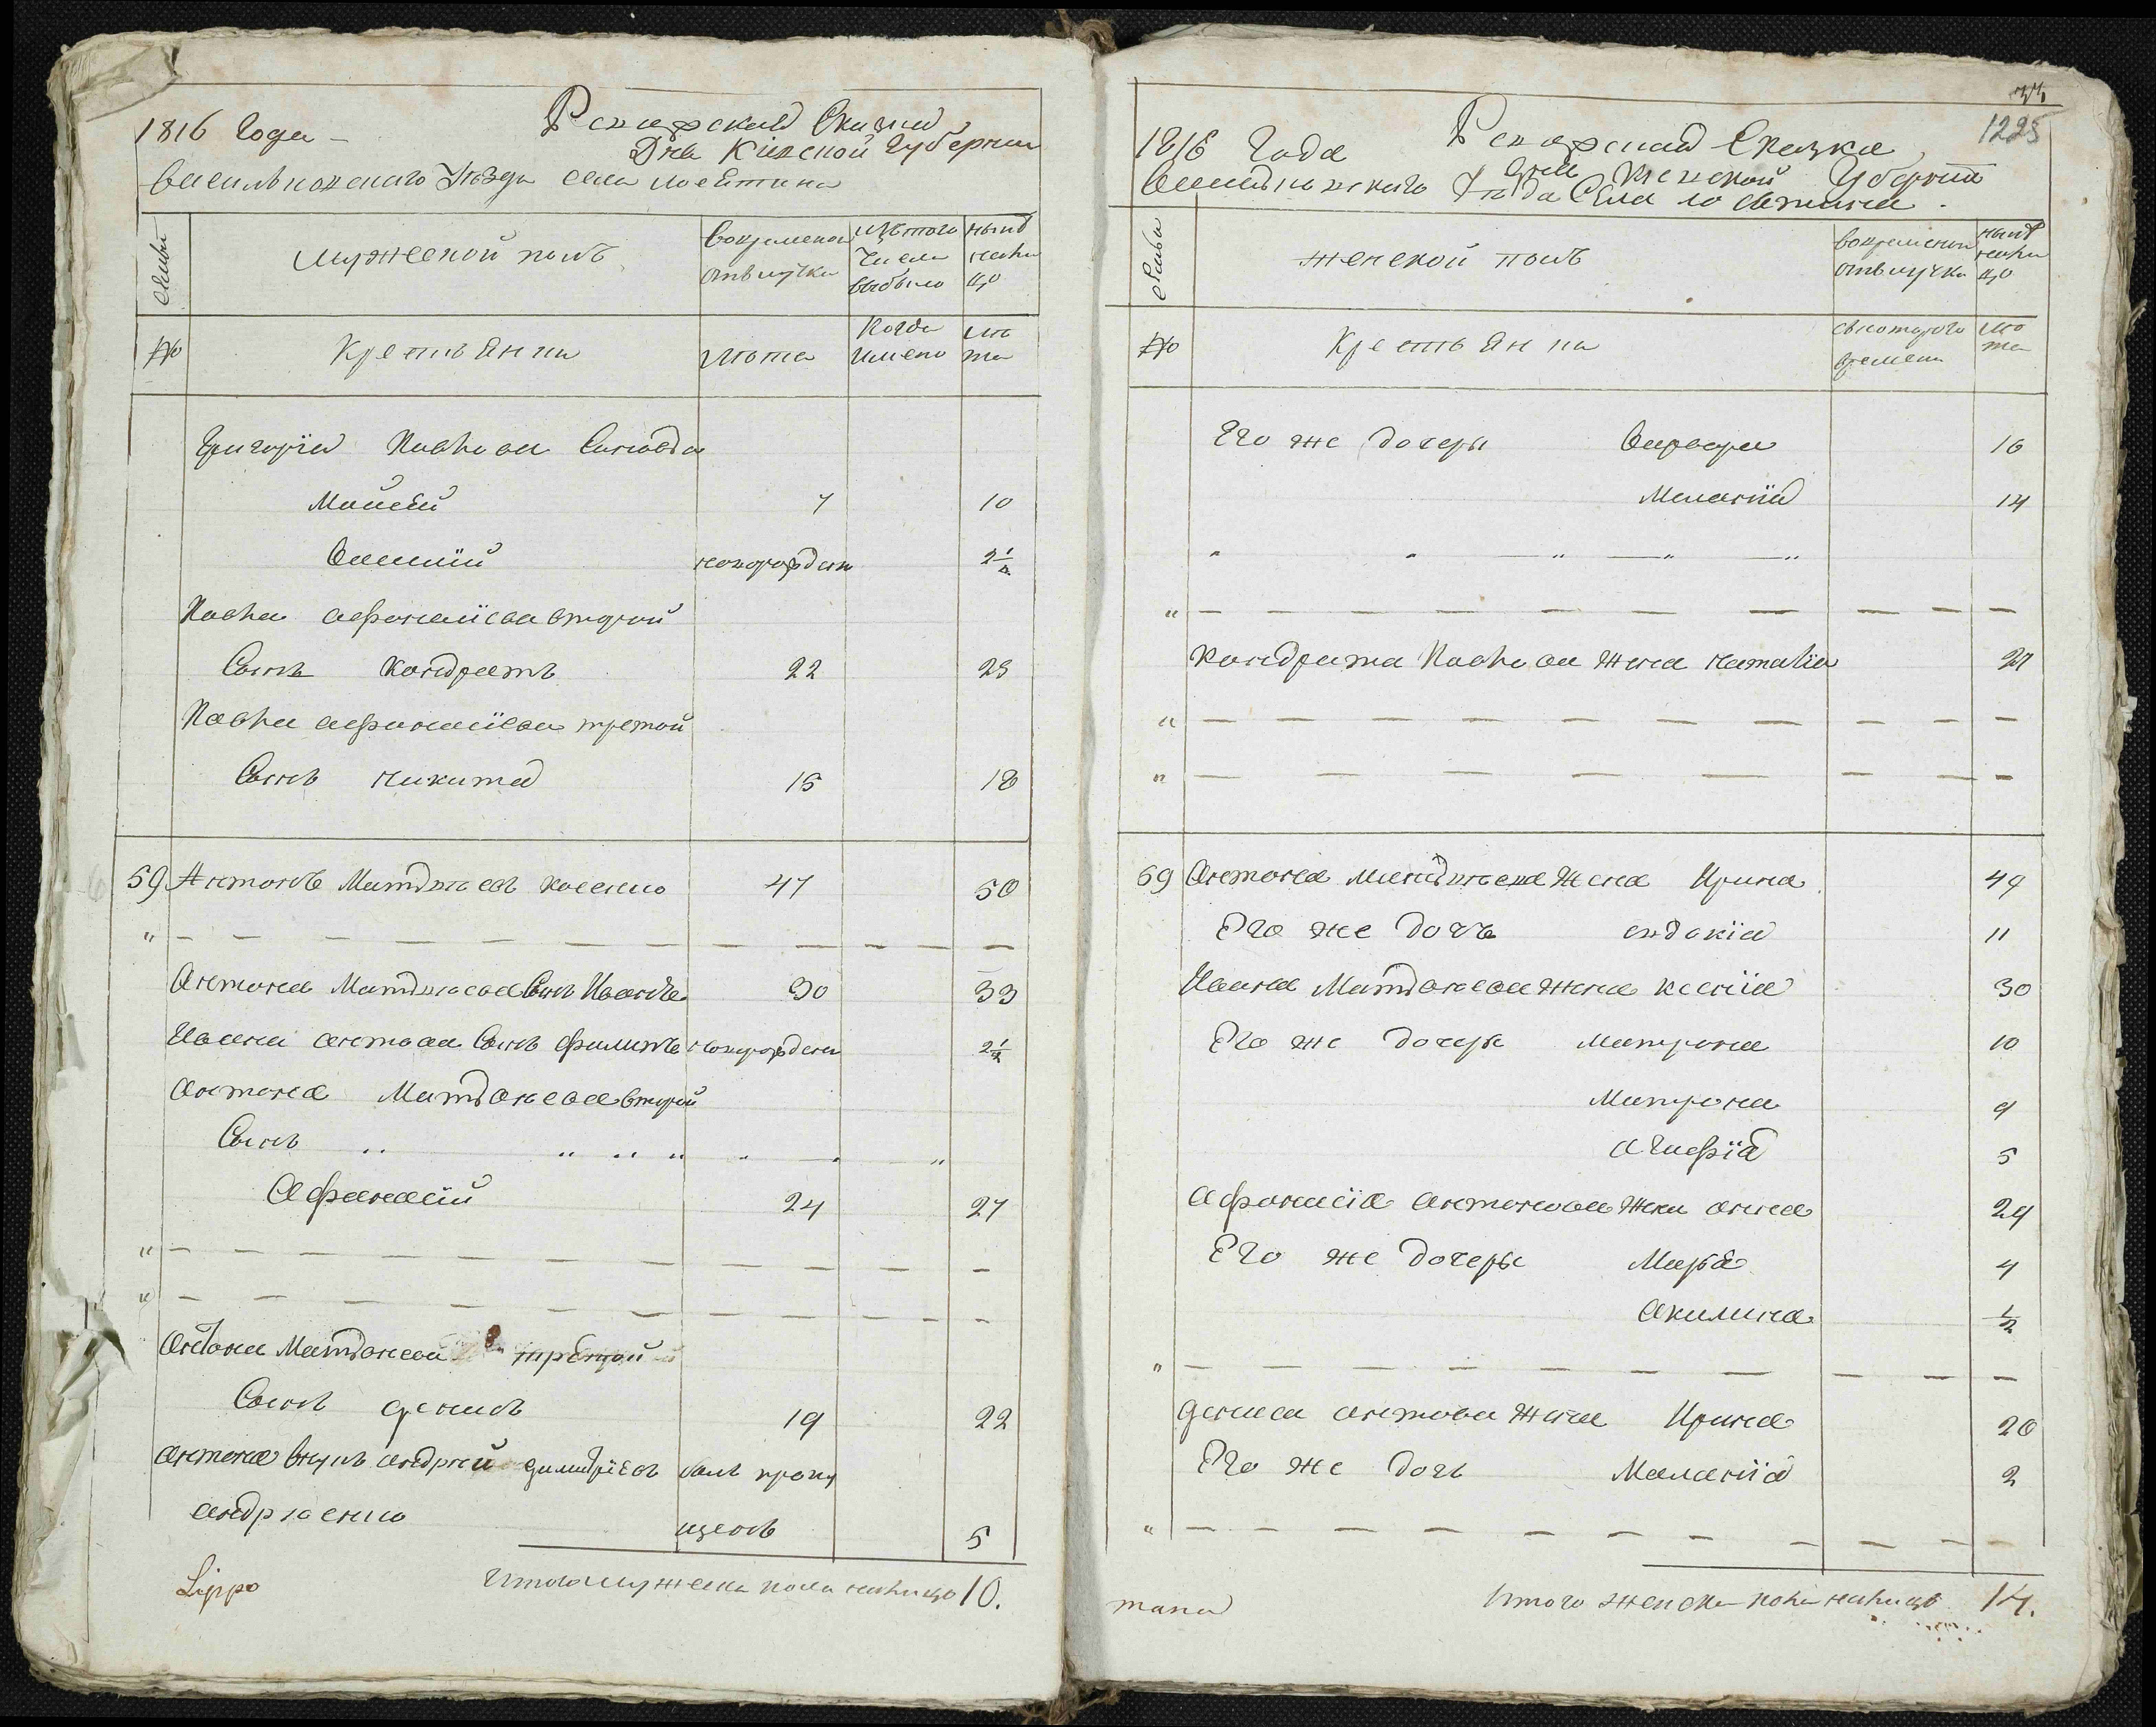 1816 Года – Ревижская Сказка
Для Кіевской Губерніи
Васильковского Уѣзда села
семьи
мужеской полъ
вовремянной
отълучки
изъ того
числа
выбыло
нынѣ
на ли
цо
№
Крестьяни
лѣта
Когда
имено
лѣ
та
Григорія Павлова Сыновья
Мойсей 7 10
Василій новорожден 2½
Павла афонасіева второй
Сынъ Кондратъ 22 25
Павла афонасіева третой
Сынъ никита 15 18
59 Антонъ Матвѣевъ 47 50
" — — — — — — — — — —
Антона Матвѣева Сынъ Иванъ 30 33
Ивана антонова Сынъ филипъ новорожден 2½
антона Матвѣева второй
Сынъ " " " " " " "
Афанасій 24 27
" — — — — — — — — — —
" — — — — — — — — — —
Антона Матвѣева третой
Сынъ денисъ 19 22
антона внукъ андрей димитріевъ былъ пропу
андрѣенко щенъ 5
Lippo
Итого мужеска пола налицо 10.
1225
1816 Года Ревижская Сказка
Для Кіевской Губерніи
Васильковского Уѣзда Села
семьи
женской полъ
вовремянной
отълучки
нынѣ
на ли
цо
№
Крестьяни
съ котораго
времени
лѣ
та
Его же дочеры Варвара 16
Меланія 14
" " — " — " — "
" — — — — — — — — — —
Кондрата Павлова жена наталія 27
" — — — — — — — — — —
" — — — — — — — — — —
59 Антона Матвѣева Жена Ирина 49
Его же дочъ евдокія 11
Ивана Матвѣева жена ксенія 30
Его же дочеры Матрона 10
Матрона 9
Агафія 5
Афонасія антонова жена анна 24
Его же дочеры Марья 4
Акилина ½
" — — — — — — — — — —
дениса антонова жена Ирина 20
Его же дочь Маланія 2
" — — — — — — — — — —
Итого женска пола налицо 14.